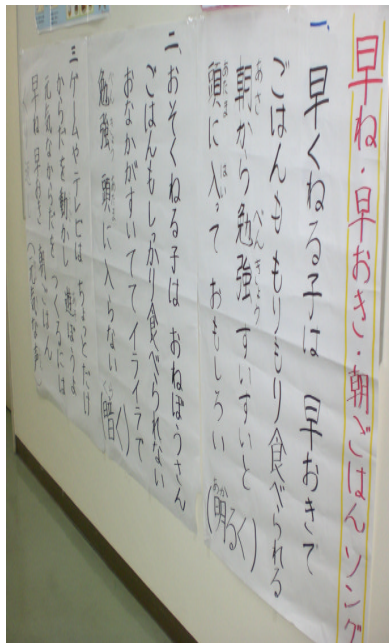 早ね・早おき・朝ごはんソング
一、早くねる子は 早おきで
ごはんも もりもり食べられる
朝から 勉強 すいすいと
頭に 入って おもしろい (明るく)
二、おそくねる子は おねぼうさん
ごはんもしっかり食べられない
おなかがすいてて イライラで
勉強 頭に 入らない (暗く)
三、ゲームやテレビは ちょっとだけ
からだを動かし 遊ぼうよ
元気なからだを つくるには
早ね 早おき 朝ごはん